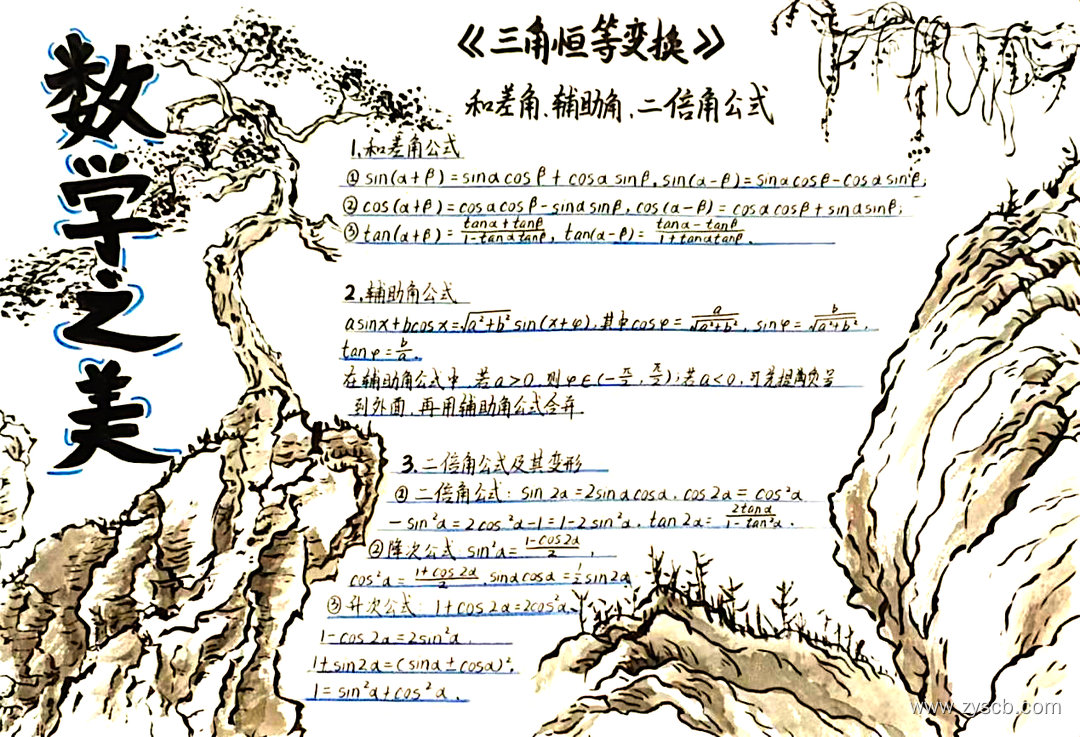 数学之美
《三角恒等变换》
和差角、辅助角、二倍角公式
1.和差角公式
① sin(α+β)=sinαcosβ+cosαsinβ,sin(α-β)=sinαcosβ-cosαsinβ;
② cos(α+β)=cosαcosβ-sinαsinβ,cos(α-β)=cosαcosβ+sinαsinβ;
③ tan(α+β)=\frac{tanα+tanβ}{1-tanαtanβ}, tan(α-β)=\frac{tanα-tanβ}{1+tanαtanβ}.
2.辅助角公式
asinx+bcosx=\sqrt{a²+b²}sin(x+φ),其中cosφ=\frac{a}{\sqrt{a²+b²}},sinφ=\frac{b}{\sqrt{a²+b²}},
tanφ=\frac{b}{a}.
在辅助角公式中,若a>0,则φ∈(-\frac{π}{2},\frac{π}{2});若a<0,可先提负号
到外面,再用辅助角公式合并.
3.二倍角公式及其变形
① 二倍角公式:sin2α=2sinαcosα.cos2α=cos²α
-sin²α=2cos²α-1=1-2sin²α,tan2α=\frac{2tanα}{1-tan²α}.
②降次公式 sin²α=\frac{1-cos2α}{2},
cos²α=\frac{1+cos2α}{2},sinαcosα=\frac{1}{2}sin2α
③升次公式:1+cos2α=2cos²α、
1-cos2α=2sin²α,
1±sin2α=(sinα±cosα)²,
1=sin²α+cos²α.
www.zyscb.com